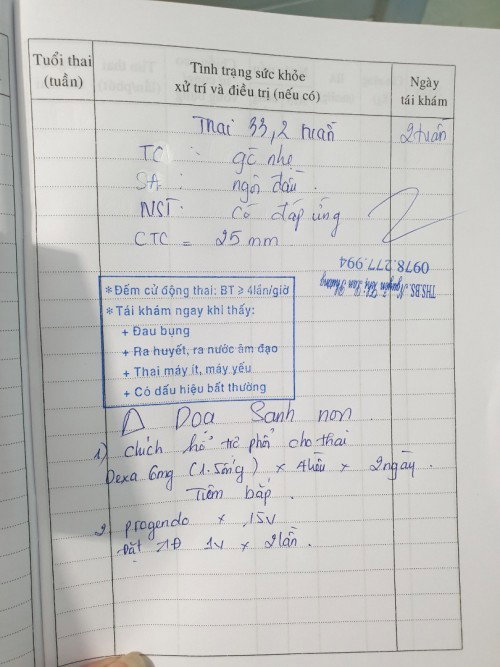 Tuổi thai
(tuần)
Tình trạng sức khỏe
xử trí và điều trị (nếu có)
Ngày
tái khám
Thai 33,2 tuần
2 tuần
TC : gò nhẹ
SA : ngôi đầu.
NST: có đáp ứng
CTC = 25 mm
0978.277.994
THS.BS. Nguyễn Thị Lan Phương
* Đếm cử động thai: BT ≥ 4lần/giờ
* Tái khám ngay khi thấy:
+ Đau bụng
+ Ra huyết, ra nước âm đạo
+ Thai máy ít, máy yếu
+ Có dấu hiệu bất thường
Δ Doạ Sanh non
1) chích hỗ trợ phổi cho thai
Dexa 6mg (1.5ống) x 4liều x 2ngày.
Tiêm bắp.
2 progendo x 15v
Đặt ÂĐ 1v x 2lần.